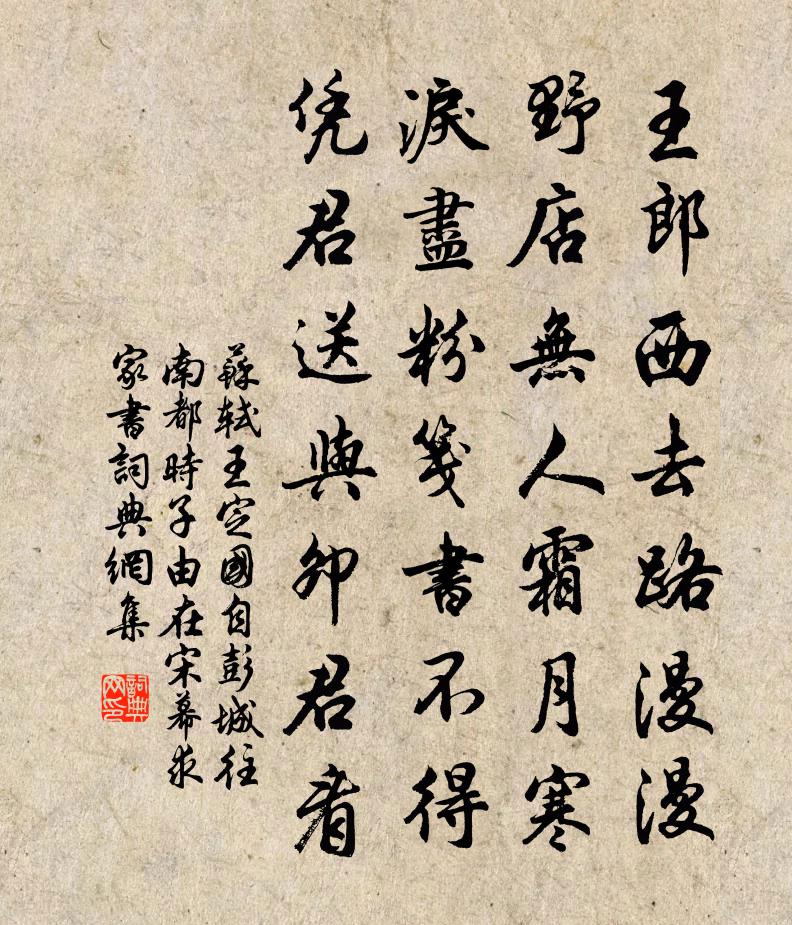 王郎西去路漫漫
野店無人霜月寒
淚盡粉箋書不得
凭君送與卯君看
蘇軾王定國自彭城往
南都時子由在宋幕求
家書詞典網集
詞典
网印